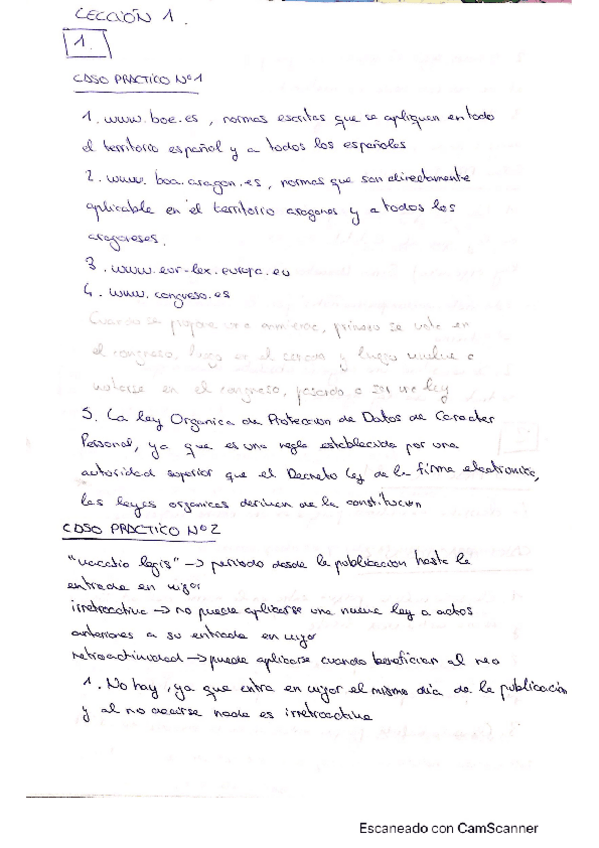 LECCIÓN 1.
1.
CASO PRACTICO Nº1
1. www.boe.es, normas escritas que se apliquen en todo
el territorio español y a todos los españoles
2. www.boa.aragon.es, normas que son directamente
aplicable en el territorio aragones y a todos los
aragoneses.
3. www.eur-lex.europa.eu
4. www.congreso.es
Cuando se propone una, primero se vota en
el congreso, luego en el senado y luego vuelve a
votarse en el congreso, pasando a ser una ley
5. La ley Organica de Proteccion de Datos de Caracter
Personal, ya que es una regla establecida por una
autoridad superior que el Decreto Ley de la firma electronica,
las leyes organicas derivan de la constitucion
CASO PRACTICO Nº2
"vacatio legis" -> periodo desde la publicacion hasta la
entrada en vigor
irretroactiva -> no puede aplicarse una nueva ley a actos
anteriores a su entrada en vigor
retroactividad -> puede aplicarse cuando benefician al reo
1. No hay, ya que entra en vigor el mismo dia de la publicación
y al no decirse nada es irretroactiva
Escaneado con CamScanner